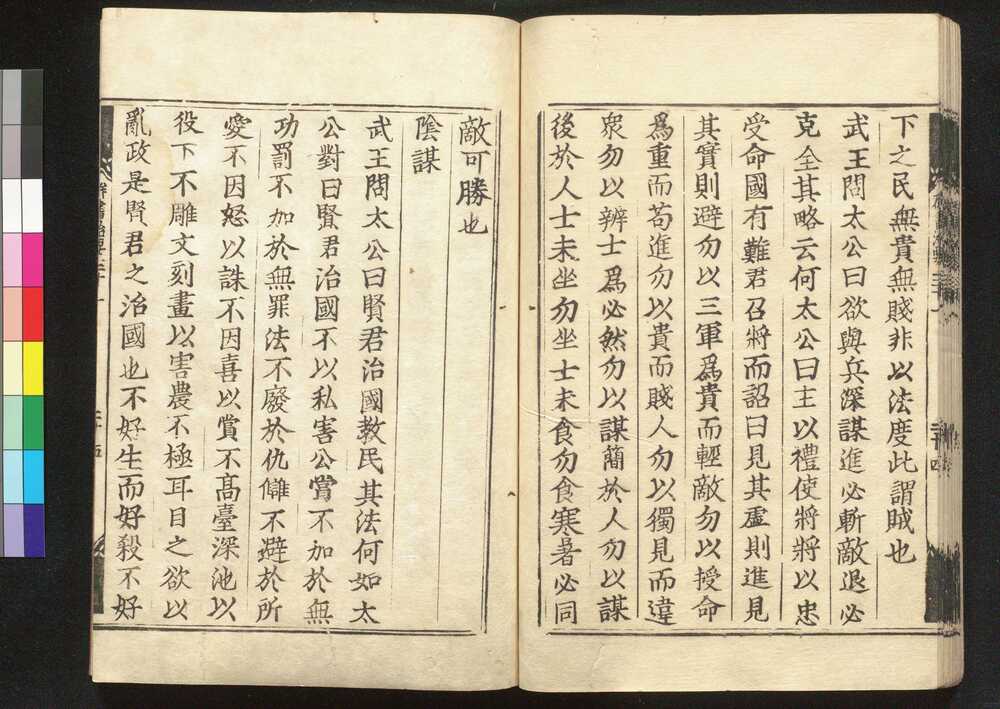 下之民無貴無賤非以法度此謂賊也
武王問太公曰欲與兵深謀進必斬敵退必
克全其略云何太公曰主以禮使將將以忠
受命國有難君召將而詔曰見其虛則進見
其實則避勿以三軍爲貴而輕敵勿以授命
爲重而苟進勿以貴而賤人勿以獨見而違
衆勿以辨士爲必然勿以謀簡於人勿以謀
後於人士未坐勿坐士未食勿食寒暑必同
敵可勝也
陰謀
武王問太公曰賢君治國教民其法何如太
公對曰賢君治國不以私害公賞不加於無
功罰不加於無罪法不廢於仇讎不避於所
愛不因怒以誅不因喜以賞不高臺深池以
役下不雕文刻畫以害農不極耳目之欲以
亂政是賢君之治國也不好生而好殺不好